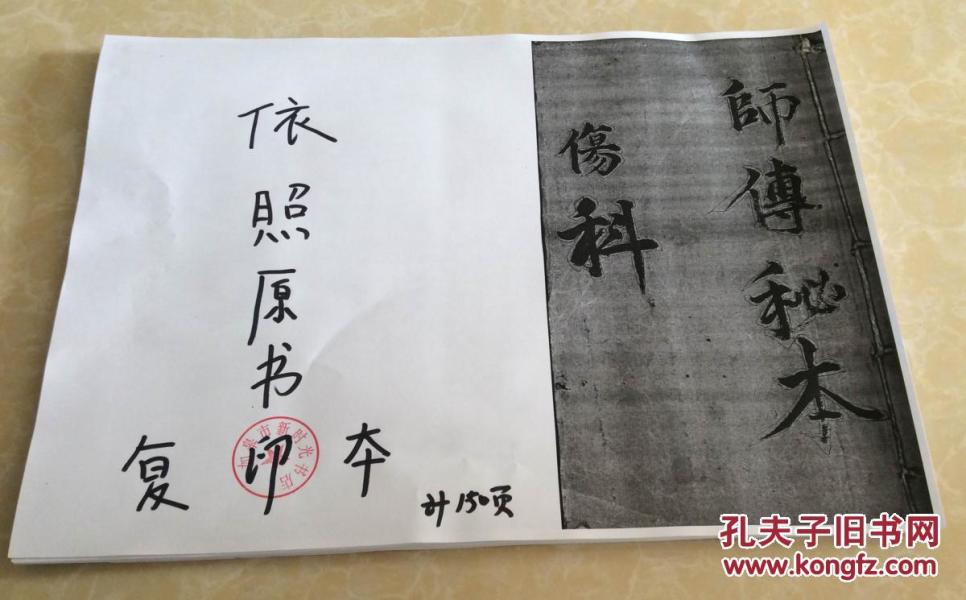 師傳秘本
傷科
依照原书
复印本
计150页
如皋市新时光书店
孔夫子旧书网
www.kongfz.com